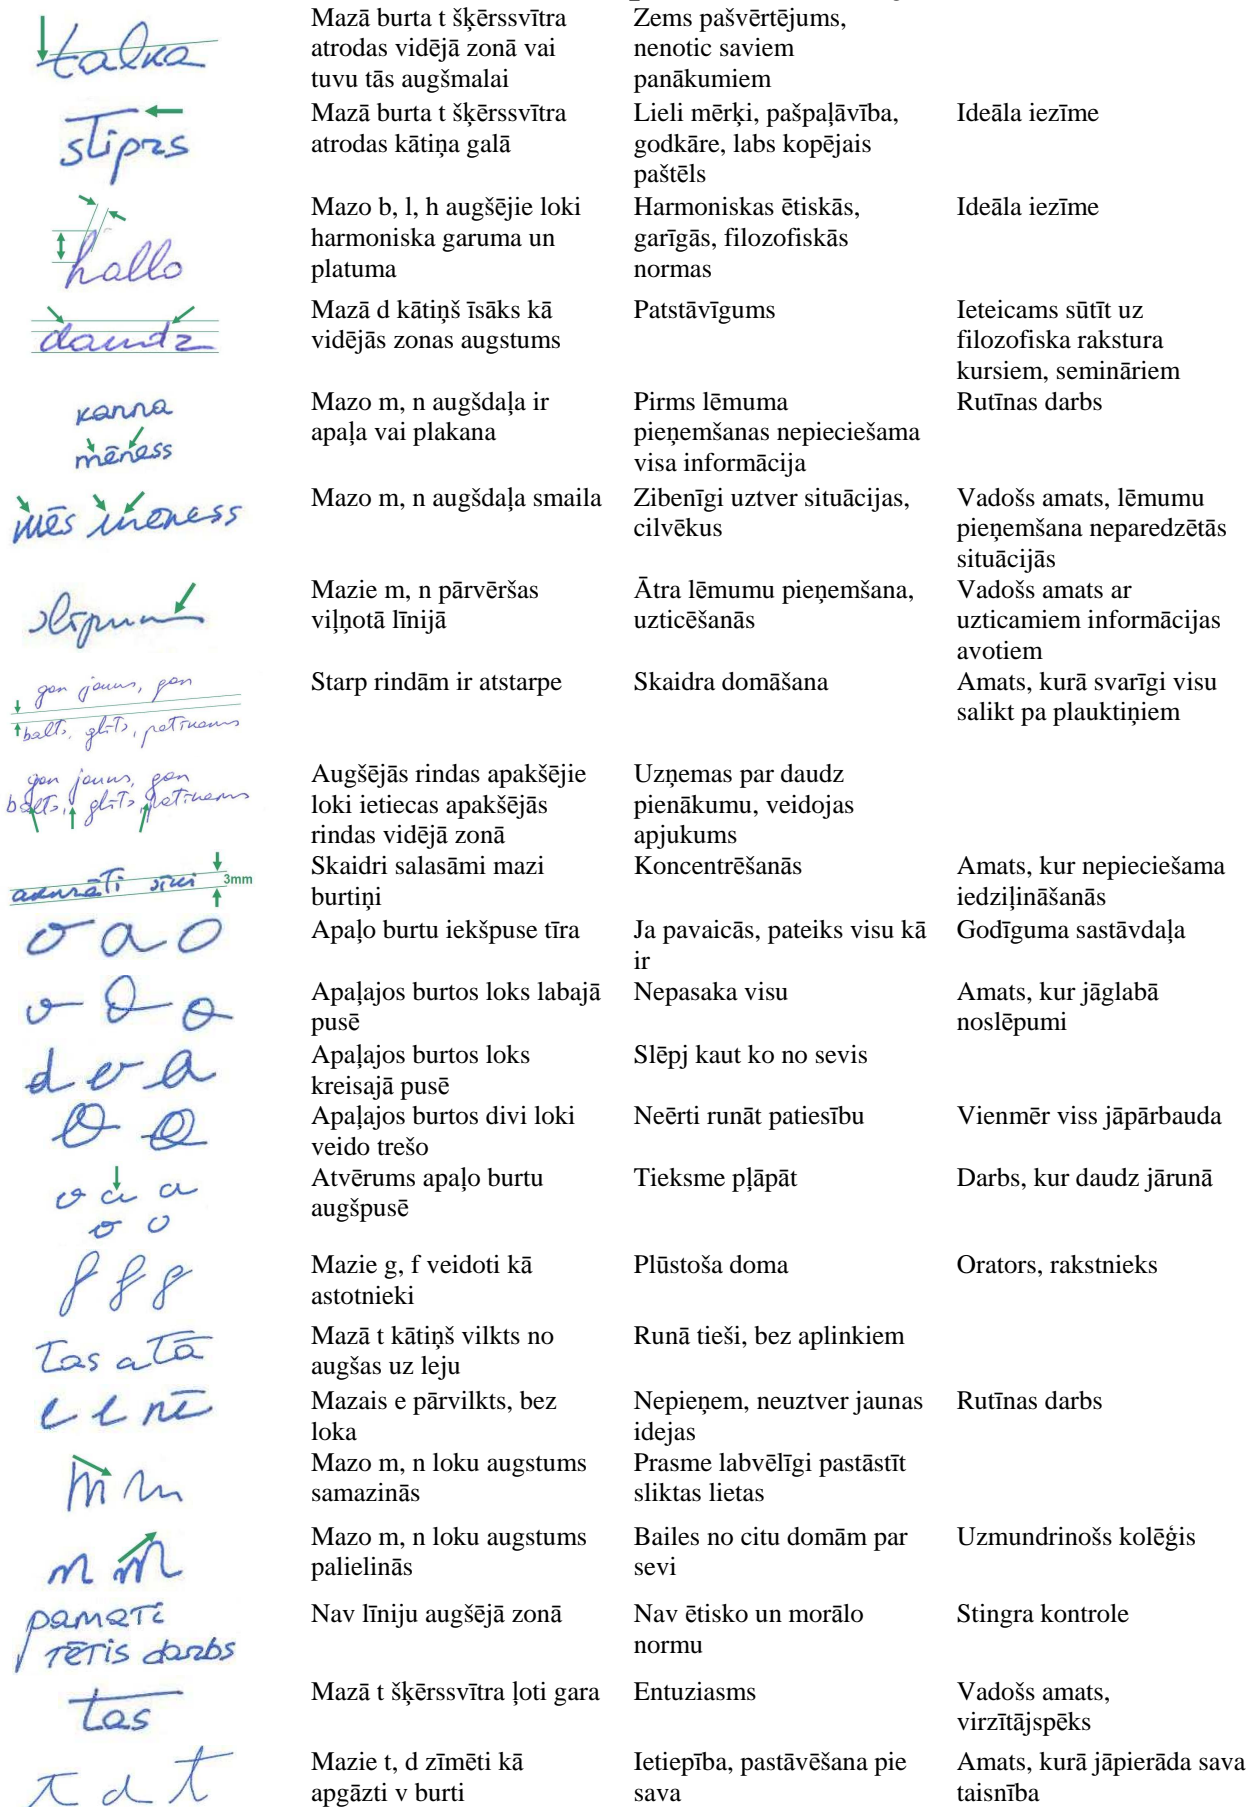 talka
Mazā burta t šķērssvītra
atrodas vidējā zonā vai
tuvu tās augšmalai
Zems pašvērtējums,
nenotic saviem
panākumiem
stiprs
Mazā burta t šķērssvītra
atrodas kātiņa galā
Lieli mērķi, pašpaļāvība,
godkāre, labs kopējais
paštēls
Ideāla iezīme
hallo
Mazo b, l, h augšējie loki
harmoniska garuma un
platuma
Harmoniskas ētiskās,
garīgās, filozofiskās
normas
Ideāla iezīme
daudz
Mazā d kātiņš īsāks kā
vidējās zonas augstums
Patstāvīgums
Ieteicams sūtīt uz
filozofiska rakstura
kursiem, semināriem
kanna
mēness
Mazo m, n augšdaļa ir
apaļa vai plakana
Pirms lēmuma
pieņemšanas nepieciešama
visa informācija
Rutīnas darbs
mēs mēness
Mazo m, n augšdaļa smaila
Zibenīgi uztver situācijas,
cilvēkus
Vadošs amats, lēmumu
pieņemšana neparedzētās
situācijās
slīpum
Mazie m, n pārvēršas
viļņotā līnijā
Ātra lēmumu pieņemšana,
uzticēšanās
Vadošs amats ar
uzticamiem informācijas
avotiem
gan jauns, gan
balts, glīts, patīkams
Starp rindām ir atstarpe
Skaidra domāšana
Amats, kurā svarīgi visu
salikt pa plauktiņiem
gan jauns, gan
balts, glīts, patīkams
Augšējās rindas apakšējie
loki ietiecas apakšējās
rindas vidējā zonā
Uzņemas par daudz
pienākumu, veidojas
apjukums
akurāti sīki 3mm
Skaidri salasāmi mazi
burtiņi
Koncentrēšanās
Amats, kur nepieciešama
iedziļināšanās
o a o
Apaļo burtu iekšpuse tīra
Ja pavaicās, pateiks visu kā
ir
Godīguma sastāvdaļa
o o o
Apaļajos burtos loks labajā
pusē
Nepasaka visu
Amats, kur jāglabā
noslēpumi
d o a
Apaļajos burtos loks
kreisajā pusē
Slēpj kaut ko no sevis
o o
Apaļajos burtos divi loki
veido trešo
Neērti runāt patiesību
Vienmēr viss jāpārbauda
o a a
o o
Atvērums apaļo burtu
augšpusē
Tieksme pļāpāt
Darbs, kur daudz jārunā
f f g
Mazie g, f veidoti kā
astotnieki
Plūstoša doma
Orators, rakstnieks
Tas atā
Mazā t kātiņš vilkts no
augšas uz leju
Runā tieši, bez aplinkiem
e e nē
Mazais e pārvilkts, bez
loka
Nepieņem, neuztver jaunas
idejas
Rutīnas darbs
m m
Mazo m, n loku augstums
samazinās
Prasme labvēlīgi pastāstīt
sliktas lietas
m m
Mazo m, n loku augstums
palielinās
Bailes no citu domām par
sevi
Uzmundrinošs kolēģis
pamati
tētis darbs
Nav līniju augšējā zonā
Nav ētisko un morālo
normu
Stingra kontrole
tas
Mazā t šķērssvītra ļoti gara
Entuziasms
Vadošs amats,
virzītājspēks
t d t
Mazie t, d zīmēti kā
apgāzti v burti
Ietiepība, pastāvēšana pie
sava
Amats, kurā jāpierāda sava
taisnība